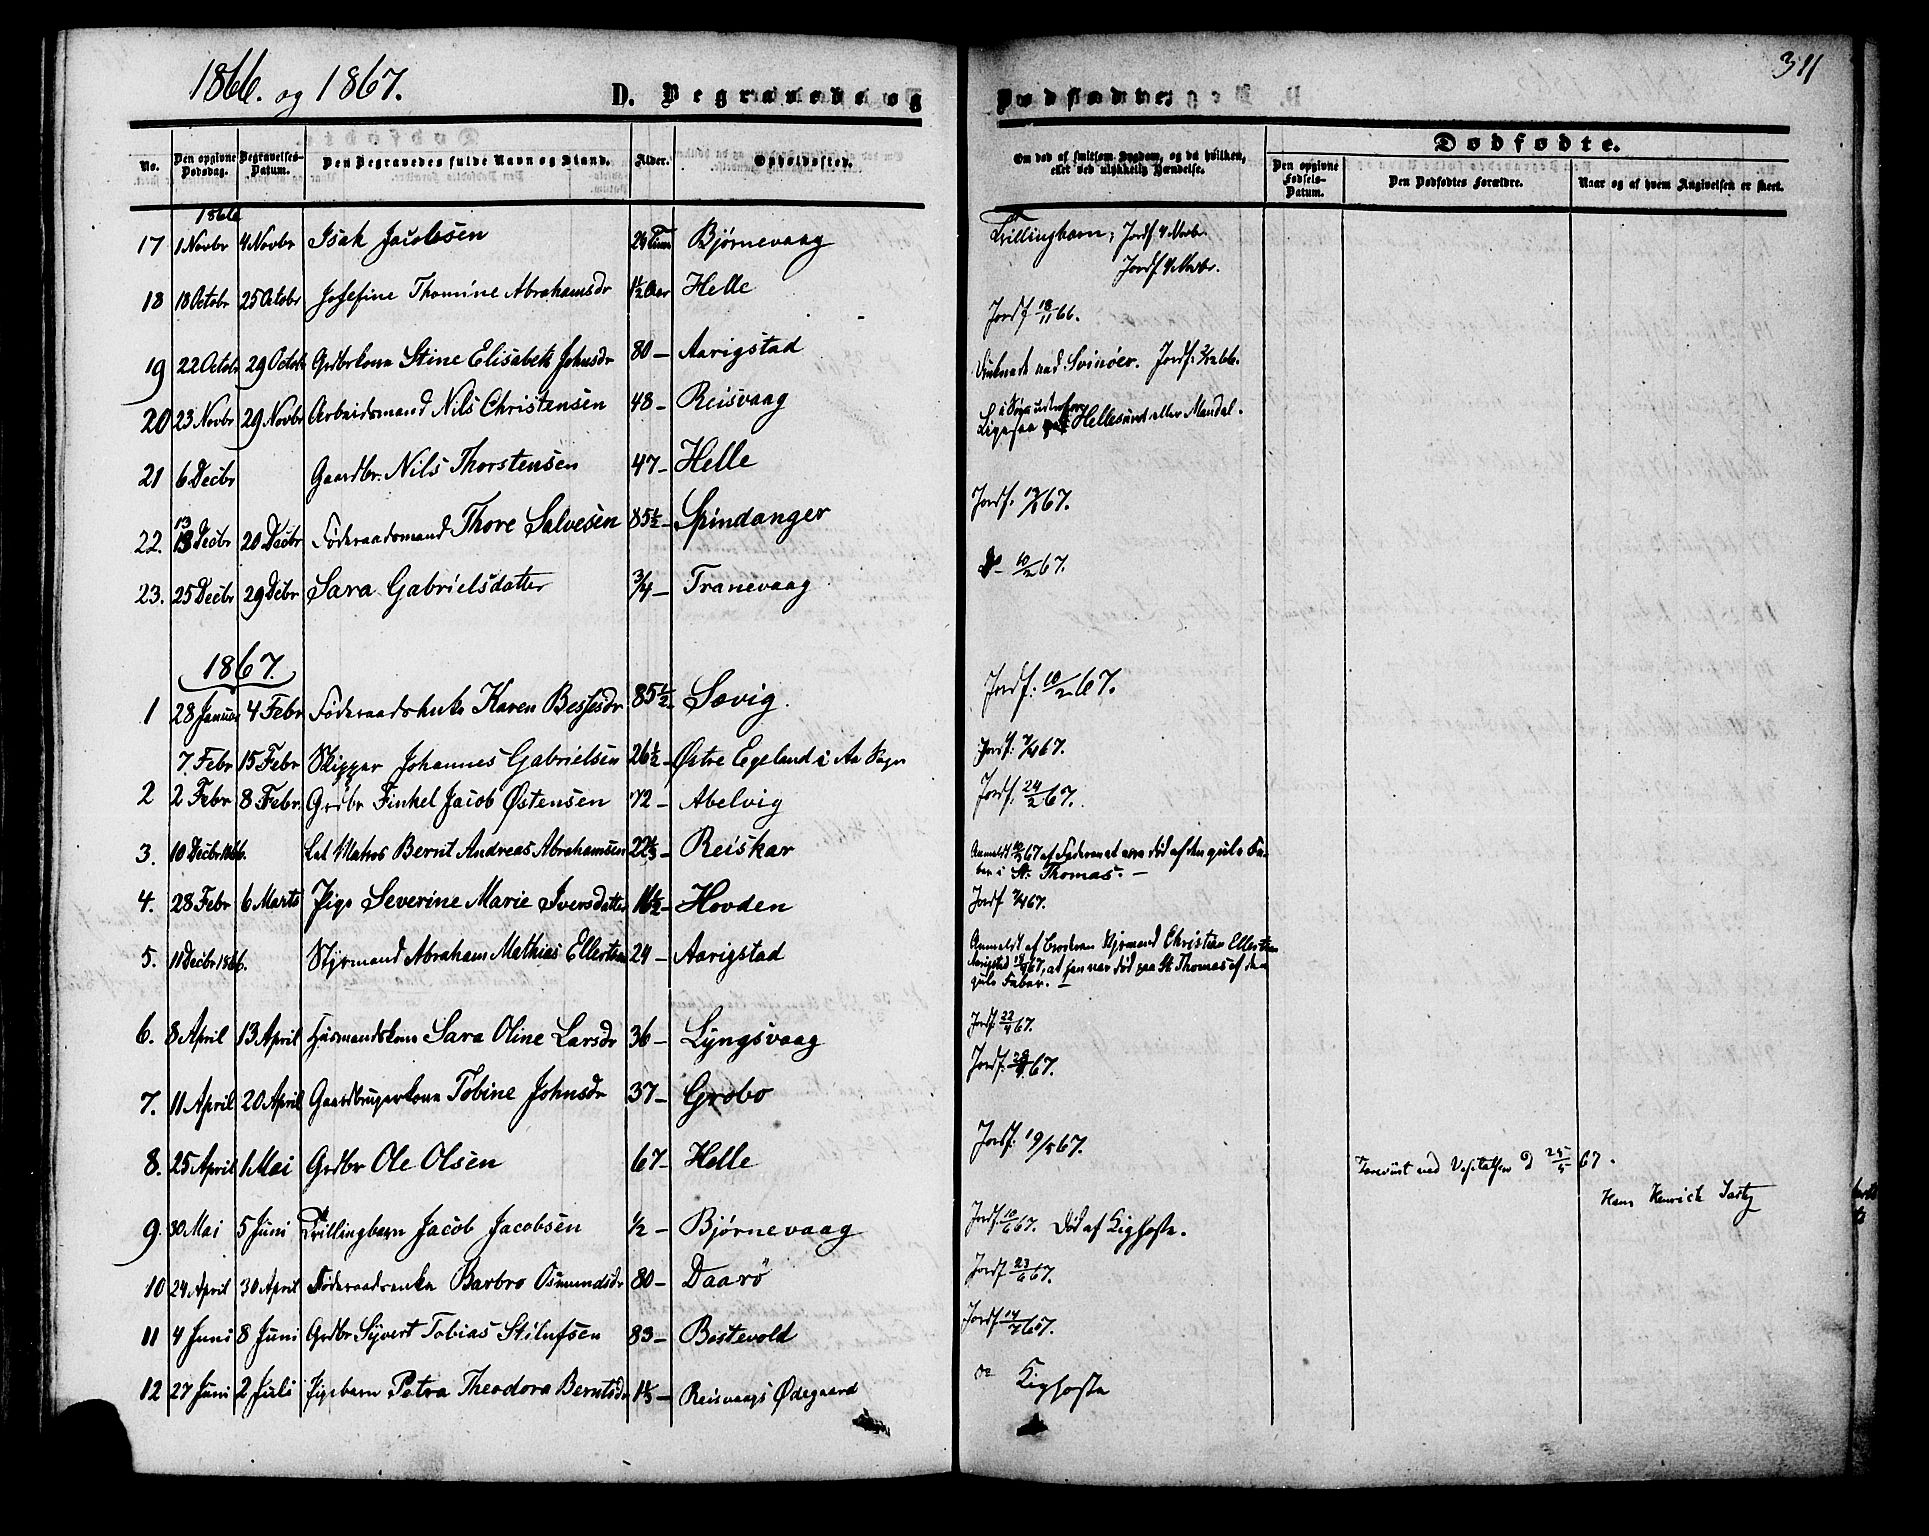 1866. og 1867.
D. Begravede og Dødfødte.
311
No. Den opgivne Dødsdag. Begravelses-Datum. Den Begravedes fulde Navn og Stand. Alder. Opholdssted. Om død af smitsom Sygdom, og da hvilken, eller ved ulykkelig Hændelse.
Dødfødte.
Den opgivne Fødsels-Datum. Den Dødfødtes Forældre. Naar og af hvem Angivelsen er skeet.
1866
17 1 Novbr 4 Novbr Isak Jacobsen 24 Timer Bjørnevaag Trillingbarn; Jordf. 4 Novbr.
Jordf. 4 Novbr.
18 18 Octobr 25 Octobr Josefine Thomine Abrahamsdr 1½ Aar Helle Jordf 18/11 66.
19 22 Octobr 29 Octobr Grdbrkone Stine Elisabeth Johnsdr 80 – Aarigstad
Druknede ved Svinöer. Jordf: 2/12 66.
20 23 Novbr 29 Novbr Arbeidsmand Nils Christensen 48 – Reisvaag
i Søen udenfor
Ligesaa Hellesund eller Mandal.
21 6 Decbr Gaardbr. Nils Thorstensen 47 – Helle
22. 13 Decbr 20 Decbr Føderaadsmand Thore Salvesen 85½ – Spindanger Jordf. 67.
23. 25 Decbr 29 Decbr Sara Gabrielsdatter ¾ – Tranevaag 10/2 67.
1867.
1 28 Januar 4 Febr Føderaadsenke Karen Bessesdr 85½ – Sævig. Jordf: 10/2 67.
7. Febr 15 Febr Skipper Johannes Gabrielsen 26½ – Østre Egeland i Aa Sogn Jordf: 7/4 67.
2 2 Febr 8 Febr. Grdbr Finkel Jacob Østensen 72 – Abelvig Jordf: 24/2 67.
3. 10 Decbr 1866. Let Matros Bernt Andreas Abrahamsen 22⅓ – Reiskar Anmeldt 67 af Faderen at være død af den gule Fe-
ber i St. Thomas. –
4. 28 Febr 6 Marts Pige Severine Marie Iversdatter 16½ – Hovden Jordf 7/4 67.
5. 11 Decbr 1866. Styrmand Abraham Mathias Ellertsen 24 – Aarigstad Anmeldt af Broderen Styrmand Christian Ellertsen
Aarigstad 67, at han var død paa St Thomas af den
gule Feber. –
6. 8 April 13 April Husmandskone Sara Oline Larsdr 36 – Lyngsvaag Jordf 22/4 67.
7. 11 April 20 April Gaardbrugerkone Tobine Johnsdr 37 – Græbø Jordf: 28/4 67.
8. 25 April 1 Mai Grdbr Ole Olsen 67 – Helle Jordf: 19/5 67.
Foreviist ved Visitatsen d 25/5 67.
9. 30 Mai 5 Juni Trillingbarn Jacob Jacobsen ½ – Bjørnevaag Jordf. 10/6 67. Død af Kighoste.
10 24 April 30 April Føderaadsenke Barbro Osmundsdr 80 – Daarö Jordf 23/6 67.
11 4 Juni 8 Juni Grdbr Syvert Tobias Stilufsen 83 – Bostevold Jordf 14/7 67.
12 27 Juni 2 Juli Pigebarn Petra Theodora Berntsdr 1⅓ – Reisvaags Ødegaard do Kighoste